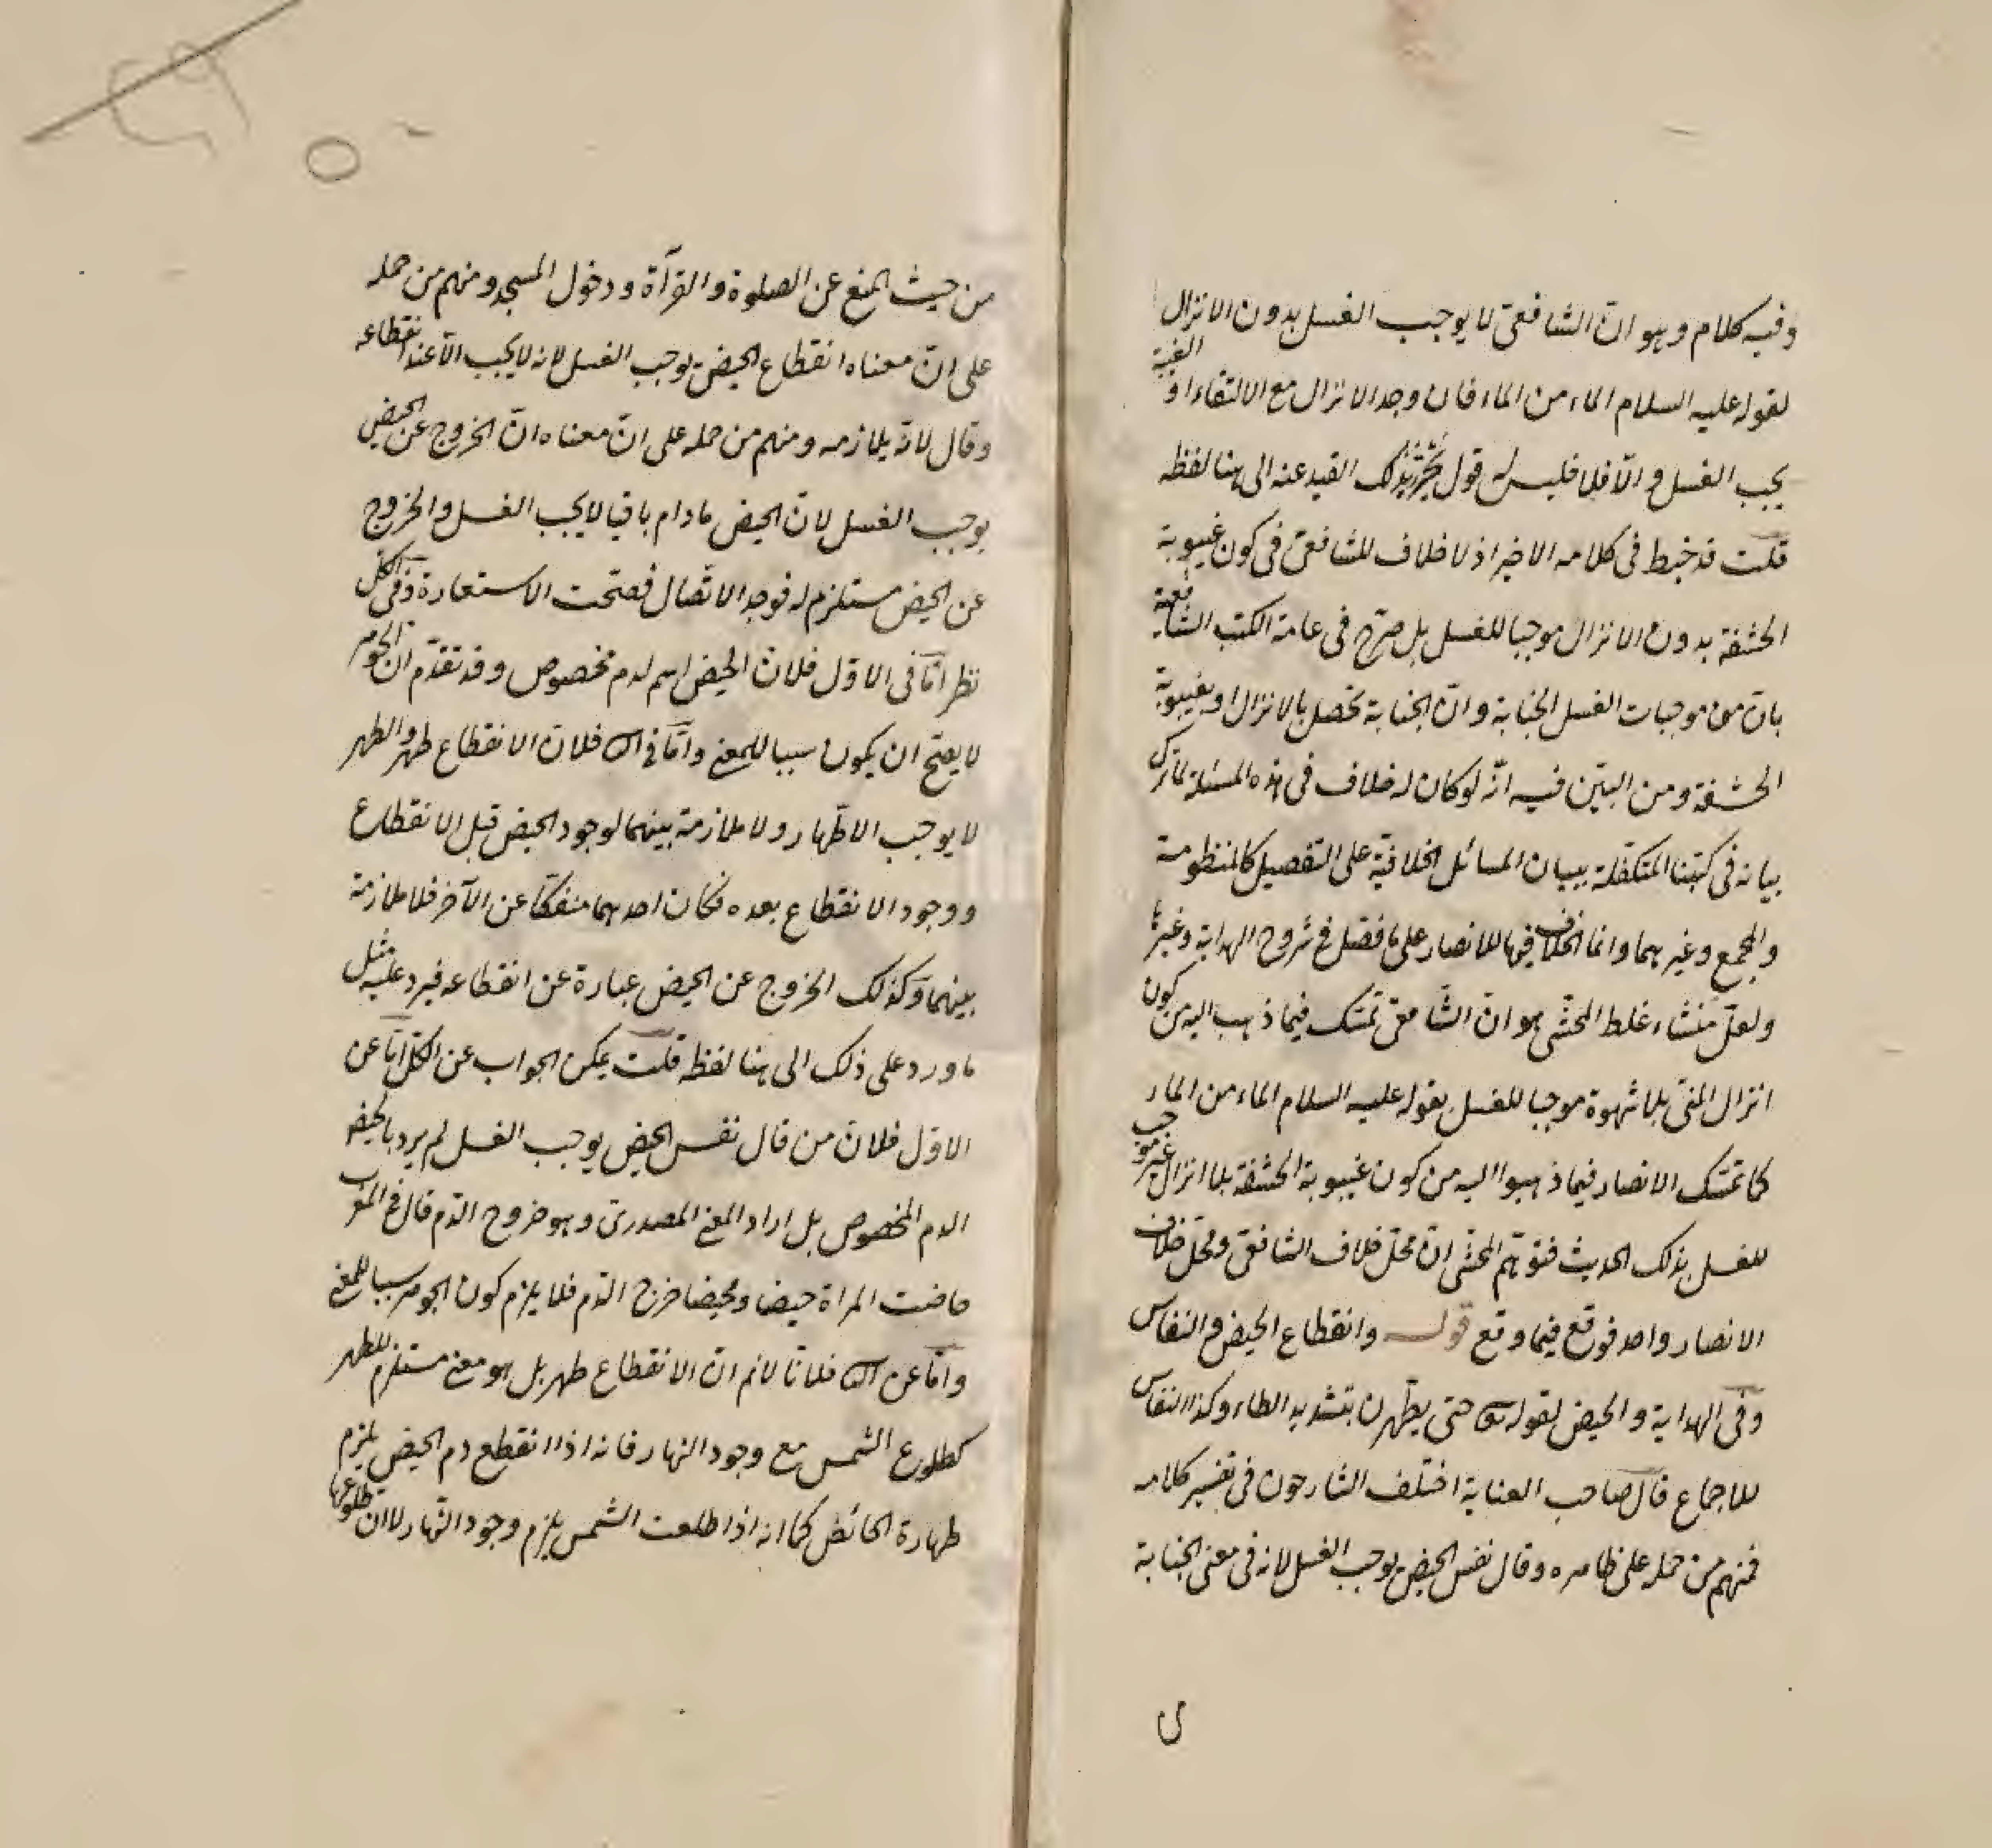 وفيه كلام وهو انّ الشافعىّ لا يوجب الغسل بدون الانزال
لقوله عليه السلام الماء من الماء فان وجد الانزال مع الالتقاء او الغيبة
يجب الغسل والّا فلا فليس له قول يحترز بذلك القيد عنه الى هنا لفظه
قلت قد خبط فى كلامه الاخير اذ لا خلاف للشافعىّ فى كون غيبوبة
الحشفة بدون الانزال موجبا للغسل بل صرّح فى عامة الكتب الشافعية
بانّ من موجبات الغسل الجنابة وانّ الجنابة تحصل بالانزال او بغيبوبة
الحشفة ومن البيّن فيه انّه لو كان له خلاف فى هذه المسئلة لما ترك
بيانه فى كتبنا المتكفّلة ببيان المسائل الخلافيّة على التفصيل كالمنظومة
والمجمع وغيرهما وانما الخلاف فيها للانصار على ما فصّل فى شروح الهداية وغيرها
ولعلّ منشاء غلط المحشّى هو انّ الشافعىّ تمسّك فيما ذهب اليه من كون
انزال المنىّ بلا شهوة موجبا للغسل بقوله عليه السلام الماء من الماء
كما تمسّك الانصار فيما ذهبوا اليه من كون غيبوبة الحشفة بلا انزال غير موجب
للغسل بذلك الحديث فتوهّم المحشّى انّ محلّ خلاف الشافعىّ ومحلّ خلاف
الانصار واحد فوقع فيما وقع قوله وانقطاع الحيض والنفاس
وفى الهداية والحيض لقوله تعالى حتى يطّهرن بتشديد الطاء وكذا النفاس
للاجماع قال صاحب العناية اختلف الشارحون فى تفسير كلامه
فمنهم من حمله على ظاهره وقال نفس الحيض يوجب الغسل لانه فى معنى الجنابة
من حيث المنع عن الصلوة والقرآة ودخول المسجد ومنهم من حمله
على انّ معناه انقطاع الحيض يوجب الغسل لانه لا يجب الّا عند انقطاعه
وقال لانّه يلازمه ومنهم من حمله على انّ معناه انّ الخروج عن الحيض
يوجب الغسل لانّ الحيض ما دام باقيا لا يجب الغسل والخروج
عن الحيض مستلزم له فوجد الاتّصال فصحّت الاستعارة وفى الكلّ
نظر امّا فى الاوّل فلانّ الحيض اسم لدم مخصوص وقد تقدّم ان الجوهر
لا يصحّ ان يكون سببا للمعنى وامّا فى الثانى فلانّ الانقطاع طهر والطهر
لا يوجب الاطّهار ولا ملازمة بينهما لوجود الحيض قبل الانقطاع
ووجود الانقطاع بعده فكان احدهما منفكّا عن الآخر فلا ملازمة
بينهما وكذلك الخروج عن الحيض عبارة عن انقطاعه فيرد عليه مثل
ما ورد على ذلك الى هنا لفظه قلت يمكن الجواب عن الكلّ امّا عن
الاوّل فلانّ من قال نفس الحيض يوجب الغسل لم يرد بالحيض
الدم المخصوص بل اراد المعنى المصدرىّ وهو خروج الدّم قال فى المغرب
حاضت المراة حيضا ومحيضا خرج الدّم فلا يلزم كون الجوهر سببا للمعنى
وامّا عن الثانى فلانّا لا نم انّ الانقطاع طهر بل هو معنى مستلزم للطهر
كطلوع الشمس مع وجود النهار فانه اذا انقطع دم الحيض يلزم
طهارة الحائض كما انه اذا طلعت الشمس يلزم وجود النّهار لا ان طلوعها